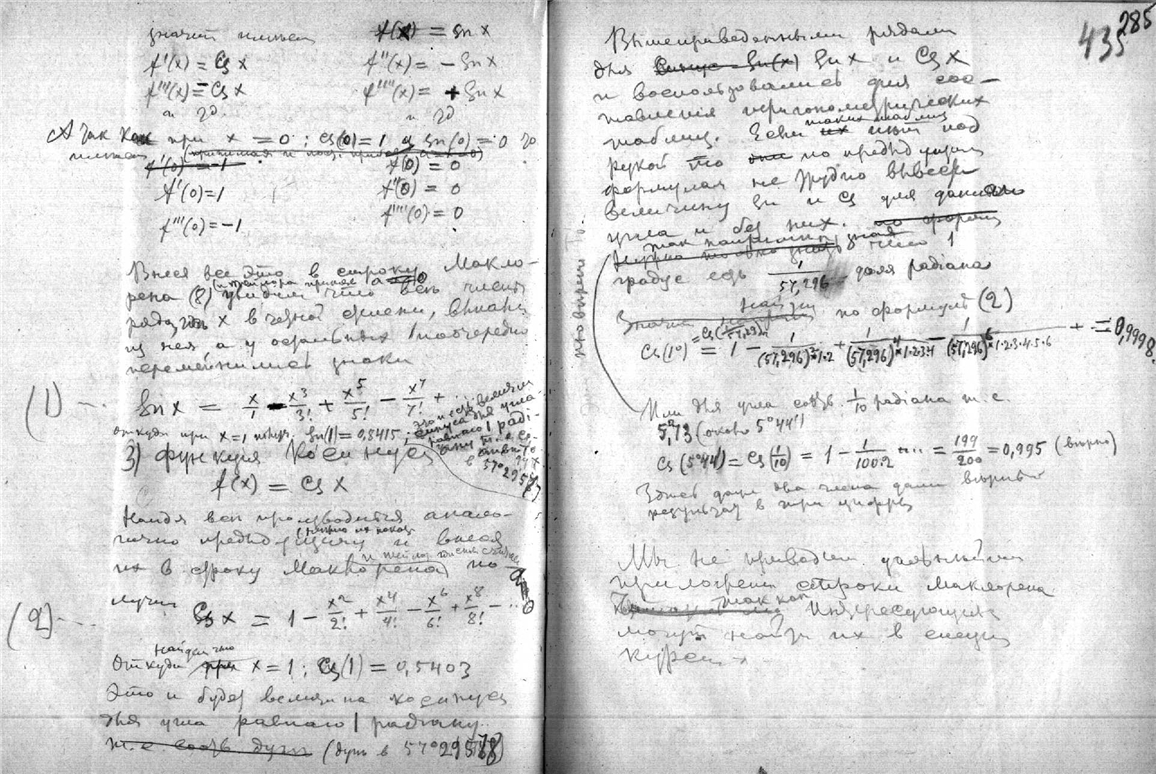 значит имеем f(x) = Sn x
f'(x) = Cs x f''(x) = - Sn x
f'''(x) = - Cs x f''''(x) = + Sn x
А так как при x = 0; Cs(0) = 1, а Sn(0) = 0 то
имеем
f'(0) = -1 f(0) = 0
f'(0) = 1 f''(0) = 0
f'''(0) = -1 f''''(0) = 0
Внеся все это в строку Макло-
рена (8) увидим что все члены
ряда x в четной степени, 
из нея а у остальных поочередно
переменились знаки
(1) Sn x = x/1 - x³/3! + x⁵/5! - x⁷/7! + ...
откуда при x=1 Sn(1) = 0,8415;
это и есть величина
синуса для угла
равнаго 1 ради-
ану
в 57°29578
3) Функция Косинус
f(x) = Cs x
Найдя все производныя анало-
гично предыдущему и внеся
их в строку Маклорена по-
лучим
(2) Cs x = 1 - x²/2! + x⁴/4! - x⁶/6! + x⁸/8! - ...
Найдем что
Откуда при x = 1; Cs(1) = 0,5403
Это и будет величина косинуса
для угла равнаго 1 радиану
т.е. дуги (дуга в 57°29578)
285
435
Вышеприведенными рядами
для Sn(x) Sn x и Cs x
и воспользовались для сос-
тавления тригонометрических
таблиц. Если таких таблиц под
рукой то по предыдущим
формулам не трудно вывести
величину Sn и Cs для даннаго
угла и без них.
Так например зная что 1
градус есть 1/57,296 доля радиана
найдем по формуле (2)
Cs(1°) = Cs(1/57,296) = 1 - 1/(57,296)²·1·2 + 1/(57,296)⁴·1·2·3·4 - 1/(57,296)⁶·1·2·3·4·5·6 + = 0,9998.
Или для угла 1/10 радиана т.е.
5,73° (около 5°44')
Cs(5°44') = Cs(1/10) = 1 - 1/100·2 ... = 199/200 = 0,995 (верно)
Здесь даже два члена дали верный
результат в три цифры
Мы не приводим дальнейших
приложений строки Маклорена
так как Интересующиеся
могут найти их в специ
курсах